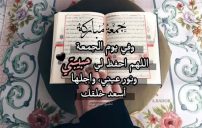 جمعة مباركة
وفي يوم الجمعة
اللهم احفظ لي حبيبتي
ونور عيني، واجعلها
أسعد خلقك